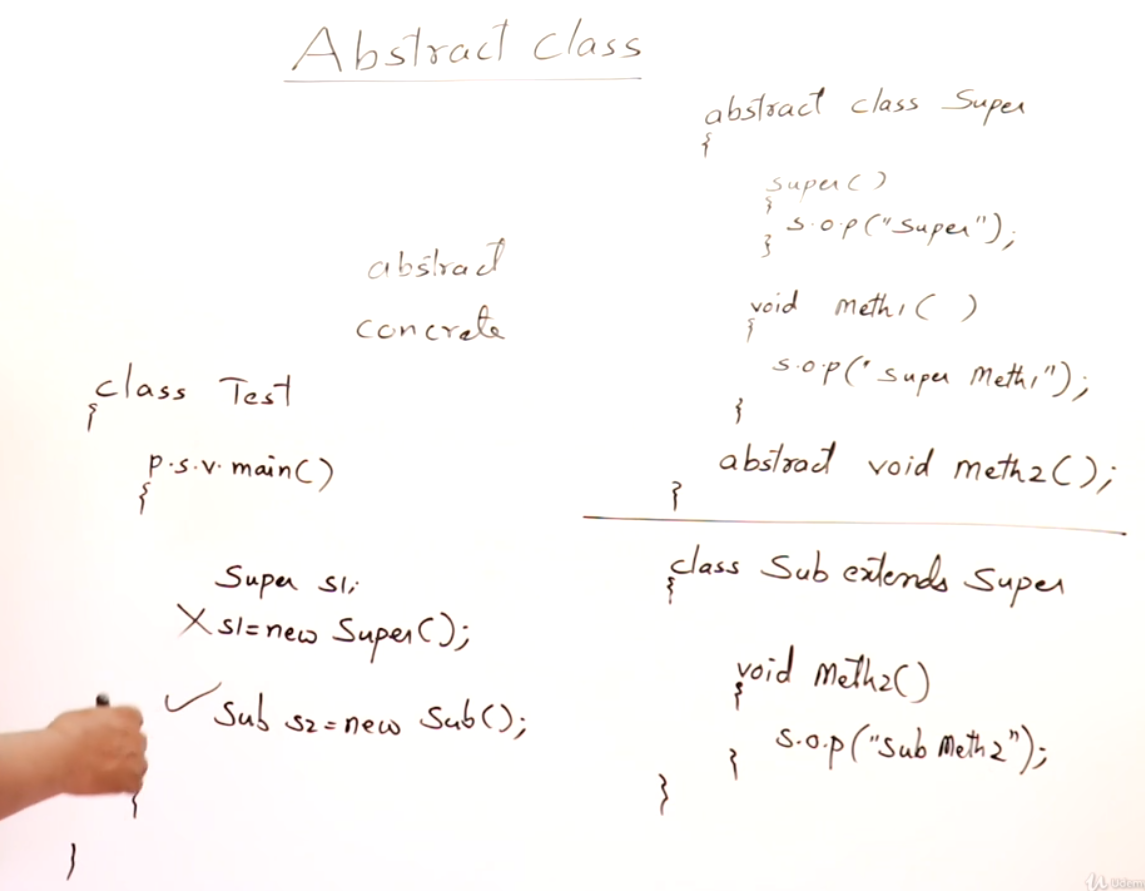 Abstract class
abstract
concrete
class Test
{
p.s.v. main()
{
Super s1;
X s1=new Super();
✓ Sub s2=new Sub();
}
}
abstract class Super
{
super()
{
s.o.p("Super");
}
void meth1( )
{
s.o.p("Super Meth1");
}
abstract void meth2();
}
class Sub extends Super
{
void Meth2()
{
s.o.p("Sub Meth2");
}
}
Udemy